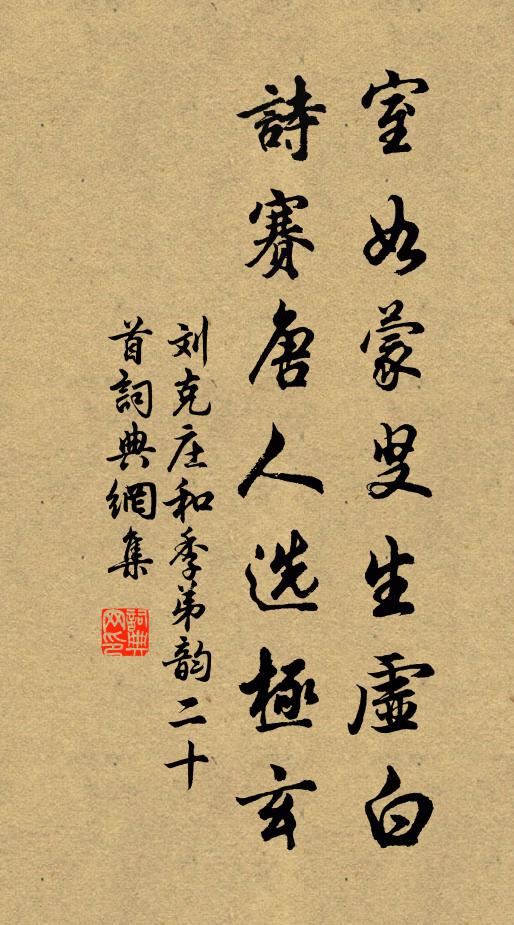 室如蒙叟生虛白
詩賽唐人选極玄
刘克庄和季弟韵二十
首詞典網集
詞典
网印